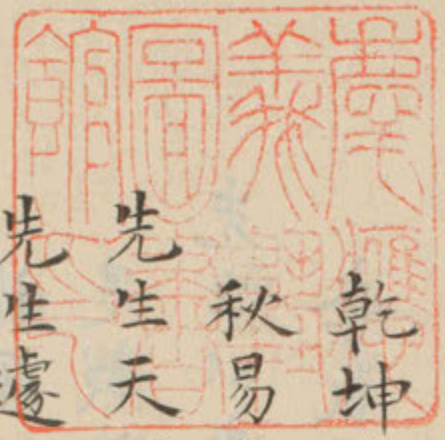 慶應
義塾
圖書
館
乾坤
秋易
先生天
先生遽